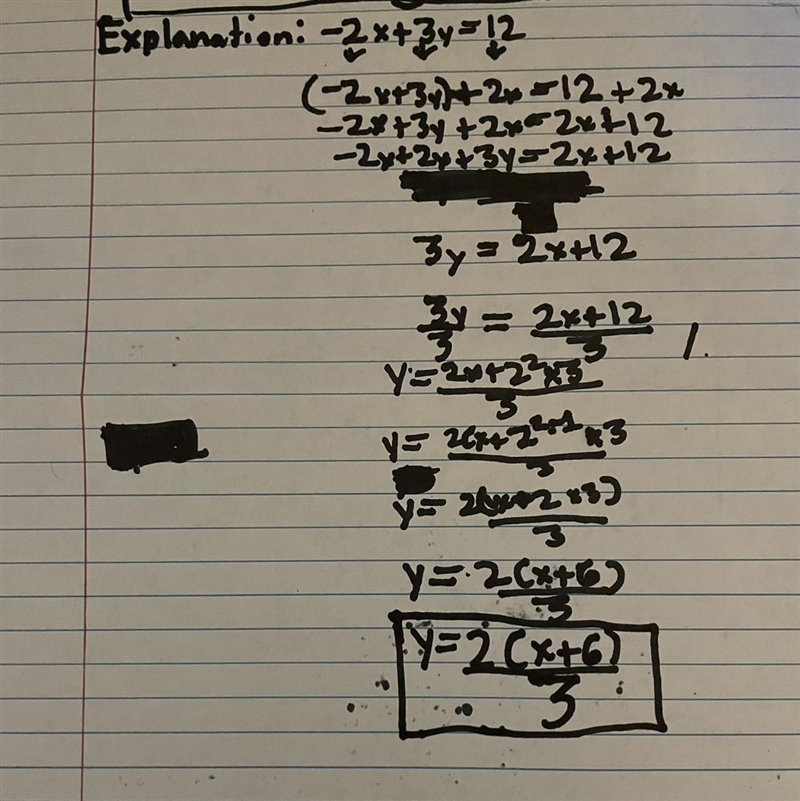 Explanation: -2x+3y=12
(-2x+3y)+2x=12+2x
-2x+3y+2x=2x+12
-2x+2x+3y=2x+12
3y=2x+12
3y/3 = 2x+12/3
y=2x+2²×3/3
y=2(x+2²⁺¹×3/3
y=2(x+2×3)/3
y=2(x+6)/3
y=2(x+6)/3